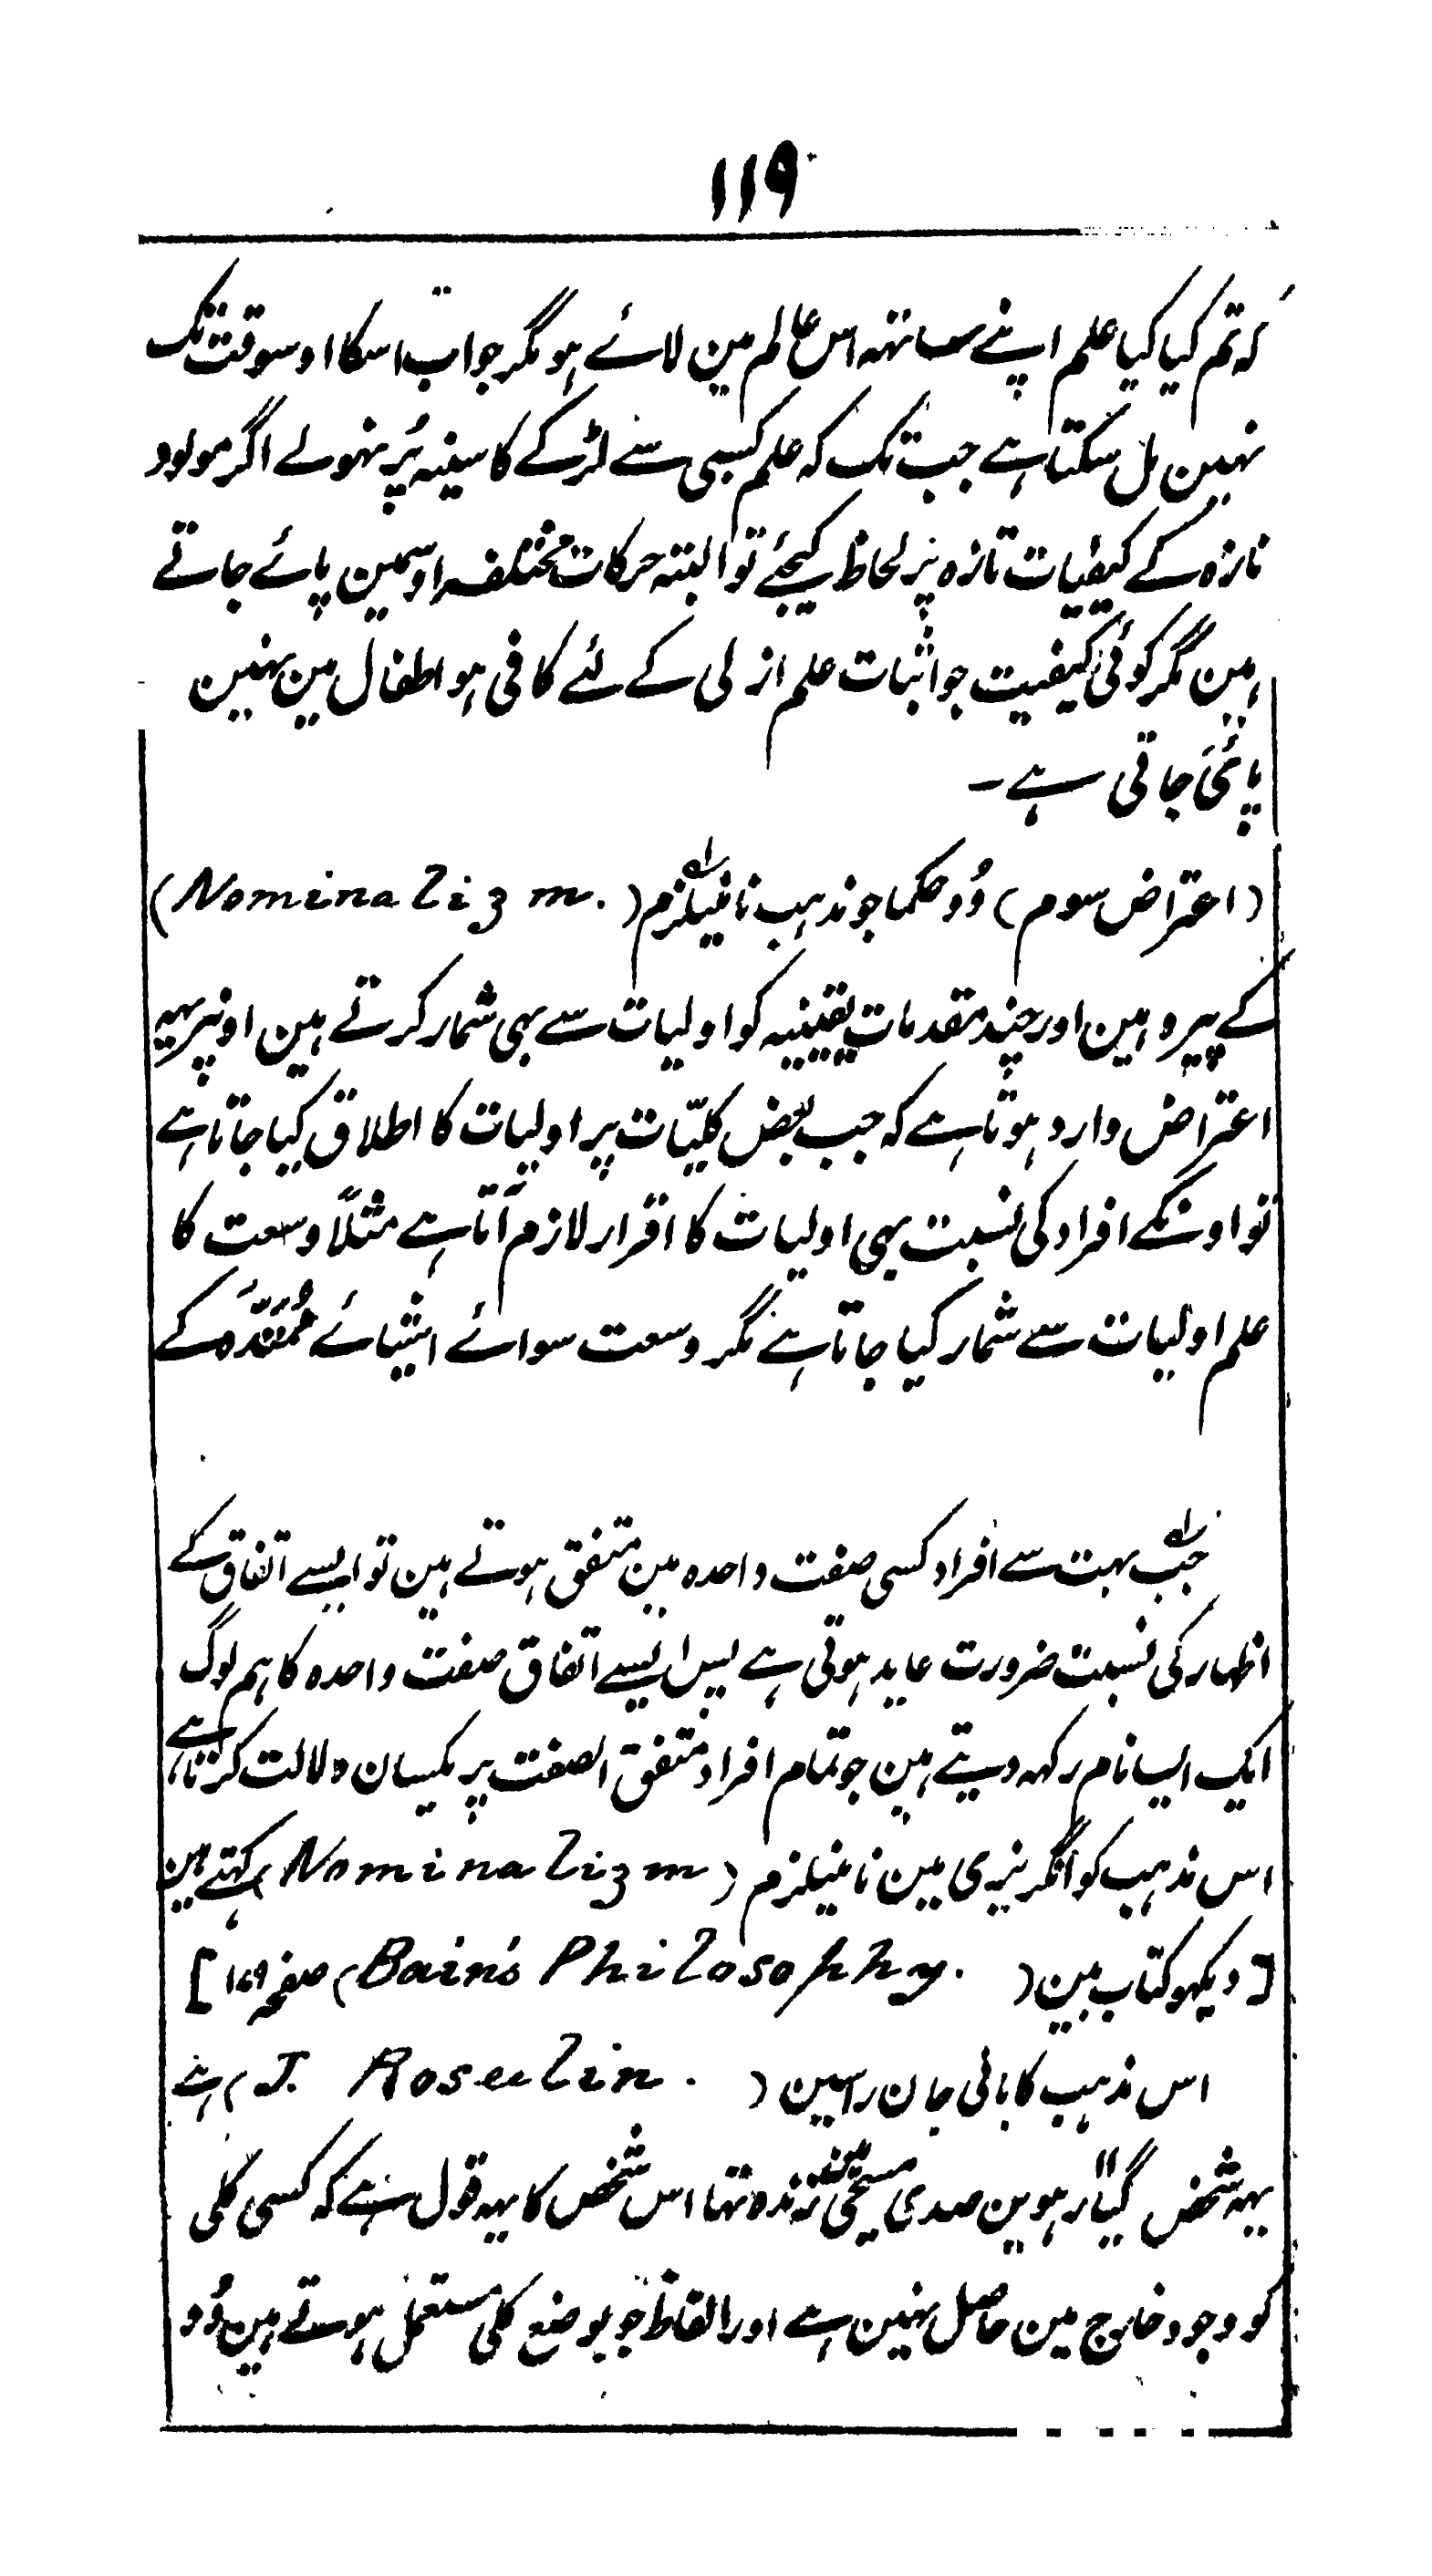 ۱۱۹
کہ تم کیا کیا علم اپنے ساتہہ اس عالم مین لائے ہو مگر جواب اسکا اوسوقت تک
نہین مل سکتا ہے جب تک کہ علم کسبی سے لڑکے کا سینہ پُر نہولے اگر مولود
تازہ کے کیفیات تازہ پر لحاظ کیجئے تو البتہ حرکات مختلفہ اوسمین پائے جاتے
ہین مگر کوئی کیفیت جو اثبات علم ازلی کے لئے کافی ہو اطفال مین نہین
پائی جاتی ہے ۔
(اعتراض سوم) وُہ حکما جو مذہب نامنیلزم لہ (Nominalizm.)
کے پیرو ہین اور چند مقدمات یقینیہ کو اولیات سے بہی شمار کرتے ہین اونپر یہہ
اعتراض وارد ہوتا ہے کہ جب بعض کلیّات پر اولیات کا اطلاق کیا جاتا ہے
تو اونکے افراد کی نسبت بہی اولیات کا اقرار لازم آتا ہے مثلاً وسعت کا
علم اولیات سے شمار کیا جاتا ہے مگر وسعت سوائے اشیائے مُمتَدّہ کے
لہ جب بہت سے افراد کسی صفت واحدہ مین متفق ہوتے ہین تو ایسے اتفاق کے
اظہار کی نسبت ضرورت عاید ہوتی ہے پس ایسے اتفاق صفت واحدہ کا ہم لوگ
ایک ایسا نام رکہہ دیتے ہین جو تمام افراد متفق الصفت پر یکسان دلالت کرتا ہے
اس مذہب کو انگریزی مین نامنیلزم (Nominalizm) کہتے ہین
[دیکہو کتاب بین (Bain's Philosophy.) صفحہ ۱۷۹]
اس مذہب کا بانی جان راسلین (J. Roseelin.) ہے
یہہ شخص گیارہوین صدی مسیحی مین زندہ تہا اس شخص کا یہہ قول ہے کہ کسی کلی
کو وجود خارج مین حاصل نہین ہے اور الفاظ جو بوضع کلی مستعمل ہوتے ہین وُہ